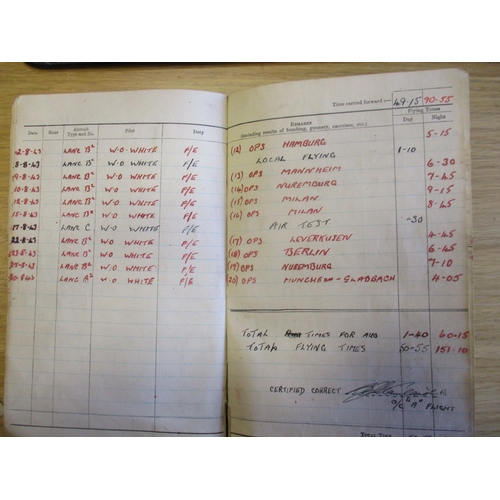 Time carried forward :— 49-15 90-55
Date Hour Aircraft Type and No. Pilot Duty
REMARKS (including results of bombing, gunnery, exercises, etc.)
Flying Times
Day Night
2-8-43 LANC B² W.O WHITE F/E (12) OPS HAMBURG 5-15
8-8-43 LANC B² W.O WHITE F/E LOCAL FLYING 1-10
9-8-43 LANC B² W.O WHITE F/E (13) OPS MANNHEIM 6-30
10-8-43 LANC B² W.O WHITE F/E (14) OPS NUREMBURG 7-45
12-8-43 LANC B² W.O WHITE F/E (15) OPS MILAN 9-15
15-8-43 LANC B² W.O WHITE F/E (16) OPS MILAN 8-45
17-8-43 LANC C W.O WHITE F/E AIR TEST -30
22-8-43 LANC B² W.O WHITE F/E (17) OPS LEVERKUSEN 4-45
23-8-43 LANC B² W.O WHITE F/E (18) OPS BERLIN 6-45
W.O WHITE F/E (19) OPS NUREMBURG 7-10
LANC A² W.O WHITE F/E (20) OPS MUNCHEN-GLADBACH 4-05
TOTAL TIMES FOR AUG 1-40 60-15
TOTAL FLYING TIMES 50-55 151-10
CERTIFIED CORRECT
O/C "A" FLIGHT
TOTAL TIME